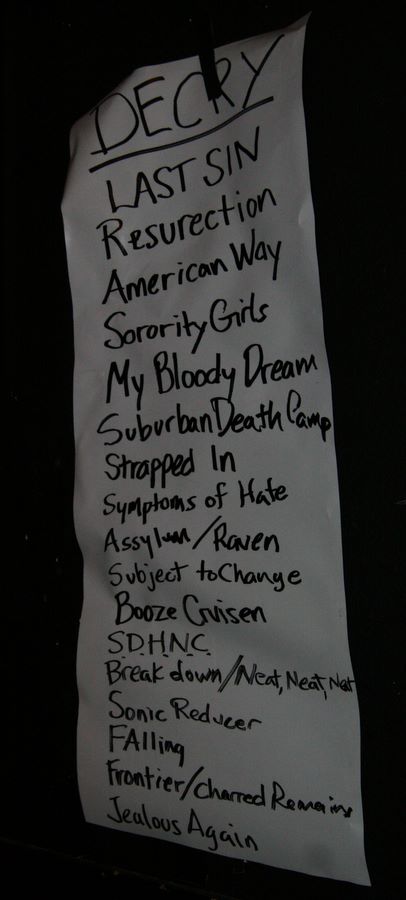 DECRY
LAST SIN
Resurection
American Way
Sorority Girls
My Bloody Dream
Suburban Death Camp
Strapped In
Symptoms of Hate
Assylum/Raven
Subject to Change
Booze Cruisen
S.D.H.N.C.
Break down/Neat, Neat, Neat
Sonic Reducer
FAlling
Frontier/Charred Remains
Jealous Again